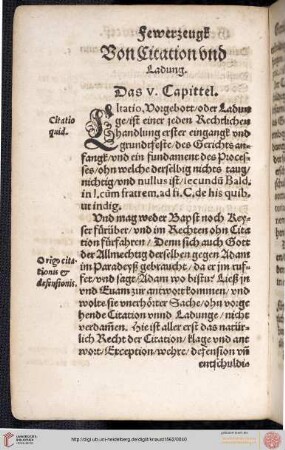 Fewerzeugk
Von Citation vnd
Ladung.
Das v. Capittel.
Citatio
quid.
CItatio, Vorgebott/ oder Ladun
ge/ ist einer jeden Rechtlichen
handlung erster eingangk vnd
grundtfeste/ des Gerichts an-
fangk/ vnd ein fundament des Proces-
ses/ ohn welche derselbig nichts taug/
nichtig/ vnd nullus ist/ secundũ Bald.
in l. cùm fratrem, ad li. C. de his quib.
ut indig.
Vnd mag weder Bapst noch Key-
ser fürüber/ vnd im Rechten ohn Cita
tion fürfahren/ Denn sich auch Gott
der Allmechtig derselben gegen Adam
Origo cita-
tionis &
defensionis.
im Paradeyß gebraucht/ da er jm ruf-
fet/ vnd sagt/ Adam wo bistu? Ließ jn
vnd Euam zur antwort kommen/ vnd
wolte sie vnerhörter Sache/ ohn vorge
hende Citation vnnd Ladunge/ nicht
verdam̃en. Hie ist aller erst das natür-
lich Recht der Citation/ klage vnd ant
wort/ Exception/ wehre/ defension vñ
entschuldi-
http://digi.ub.uni-heidelberg.de/diglit/knaust1562/0010